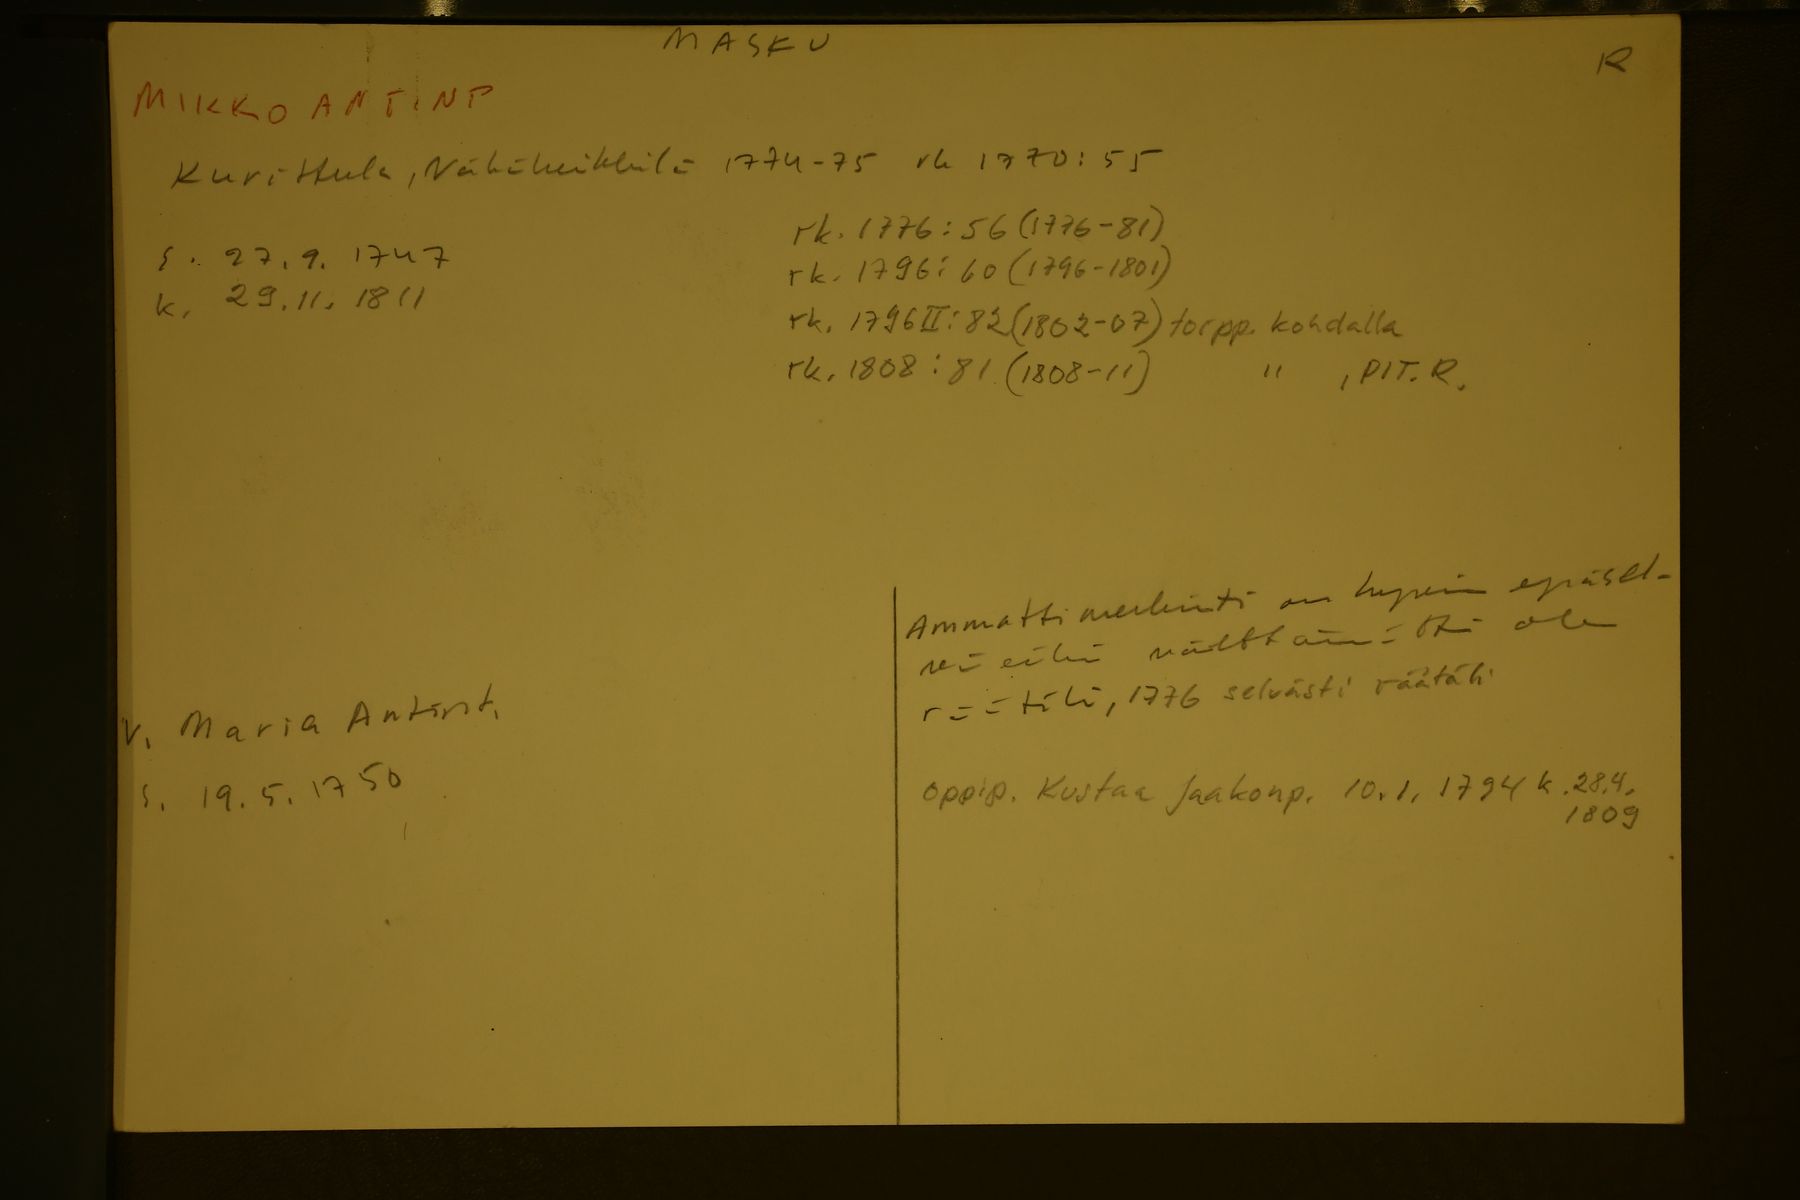 MASKU
R
MIKKO ANT.NP
Kurittula, Näkiheikkilä 1774-75 rk 1770: 55
s. 27.9. 1747
k. 29.11. 1811
rk. 1776: 56 (1776-81)
rk. 1796: 60 (1796-1801)
rk. 1796 II: 82 (1802-07) torpp. kohdalla
rk. 1808: 81 (1808-11) " , PIT. R.
Ammattimerkintä on hyvin epäsel-
vä eikä välttämättä ole
räätäli, 1776 selvästi räätäli
v. Maria Antint.
s. 19.5. 1750
oppip. Kustaa Jaakonp. 10.1. 1794 k. 28.4.
1809